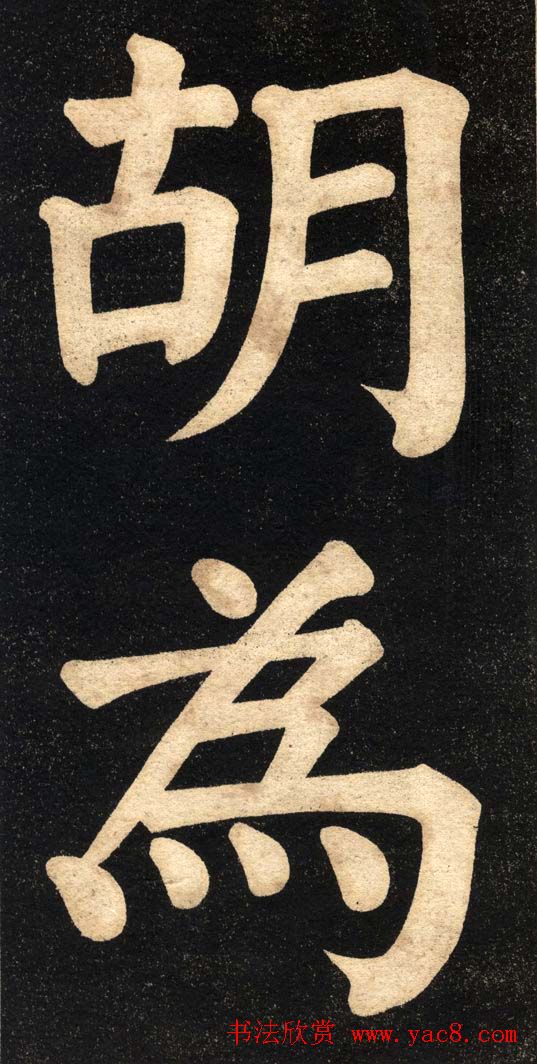 胡
為
书法欣赏 www.yac8.com